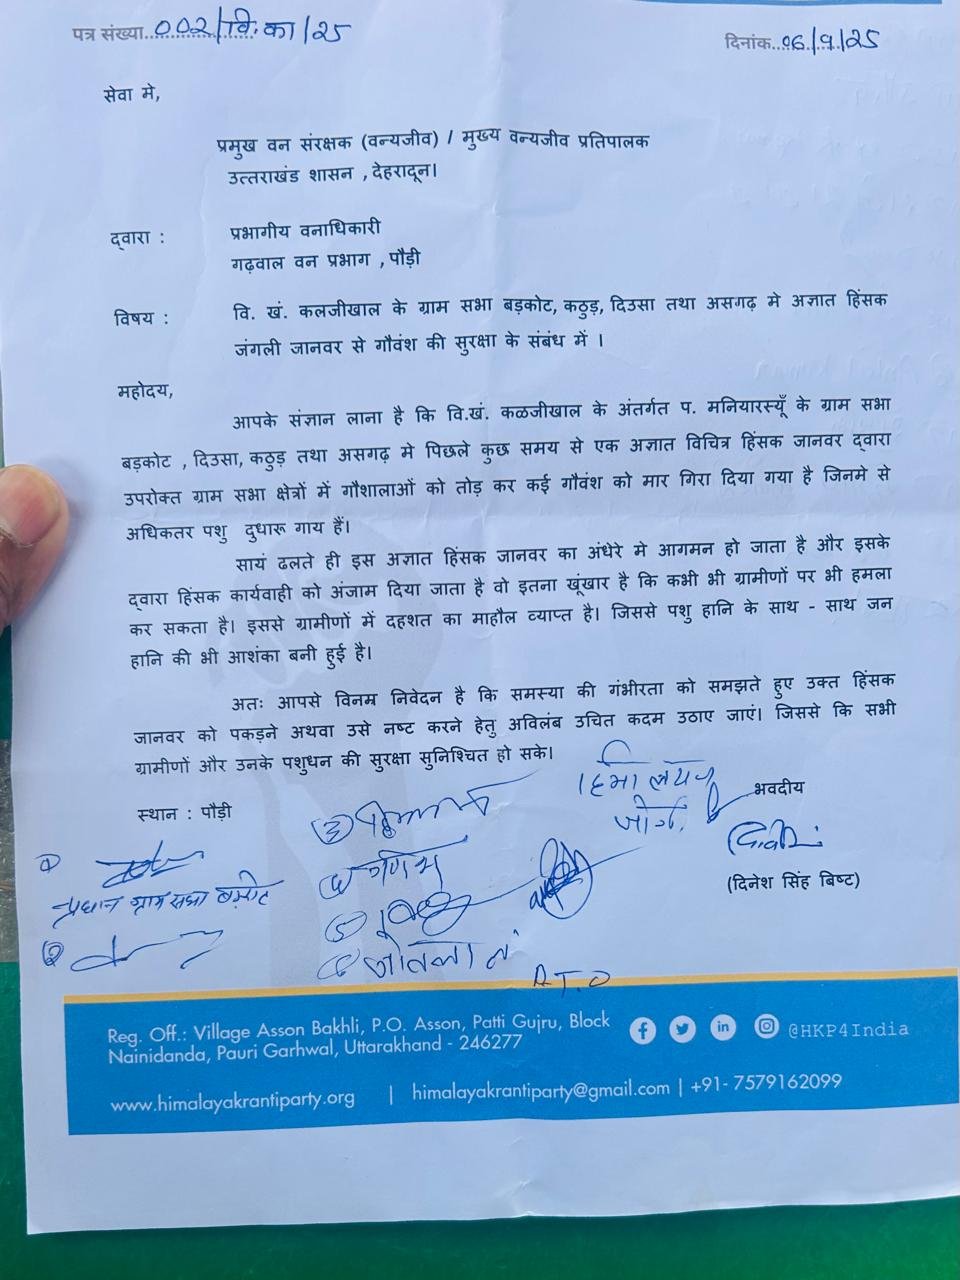 पत्र संख्या..002/वि.का/25
दिनांक..06/9/25
सेवा मे,
प्रमुख वन संरक्षक (वन्यजीव) / मुख्य वन्यजीव प्रतिपालक
उत्तराखंड शासन , देहरादून।
द्वारा : प्रभागीय वनाधिकारी
गढ़वाल वन प्रभाग , पौड़ी
विषय : वि. खं. कलजीखाल के ग्राम सभा बड़कोट, कठुड़, दिउसा तथा असगढ़ मे अज्ञात हिंसक
जंगली जानवर से गौवंश की सुरक्षा के संबंध में ।
महोदय,
आपके संज्ञान लाना है कि वि.खं. कळजीखाल के अंतर्गत प. मनियारस्यूँ के ग्राम सभा
बड़कोट , दिउसा, कठुड़ तथा असगढ़ मे पिछले कुछ समय से एक अज्ञात विचित्र हिंसक जानवर द्वारा
उपरोक्त ग्राम सभा क्षेत्रों में गौशालाओं को तोड़ कर कई गौवंश को मार गिरा दिया गया है जिनमे से
अधिकतर पशु दुधारू गाय हैं।
सायं ढलते ही इस अज्ञात हिंसक जानवर का अंधेरे मे आगमन हो जाता है और इसके
द्वारा हिंसक कार्यवाही को अंजाम दिया जाता है वो इतना खूंखार है कि कभी भी ग्रामीणों पर भी हमला
कर सकता है। इससे ग्रामीणों में दहशत का माहौल व्याप्त है। जिससे पशु हानि के साथ - साथ जन
हानि की भी आशंका बनी हुई है।
अतः आपसे विनम्र निवेदन है कि समस्या की गंभीरता को समझते हुए उक्त हिंसक
जानवर को पकड़ने अथवा उसे नष्ट करने हेतु अविलंब उचित कदम उठाए जाएं। जिससे कि सभी
ग्रामीणों और उनके पशुधन की सुरक्षा सुनिश्चित हो सके।
स्थान : पौड़ी
भवदीय
(दिनेश सिंह बिष्ट)
①
प्रधान ग्राम सभा
②
③
④
⑤
⑥
P.T.O
Reg. Off.: Village Asson Bakhli, P.O. Asson, Patti Gujru, Block
Nainidanda, Pauri Garhwal, Uttarakhand - 246277
@HKP4India
www.himalayakrantiparty.org | himalayakrantiparty@gmail.com | +91- 7579162099